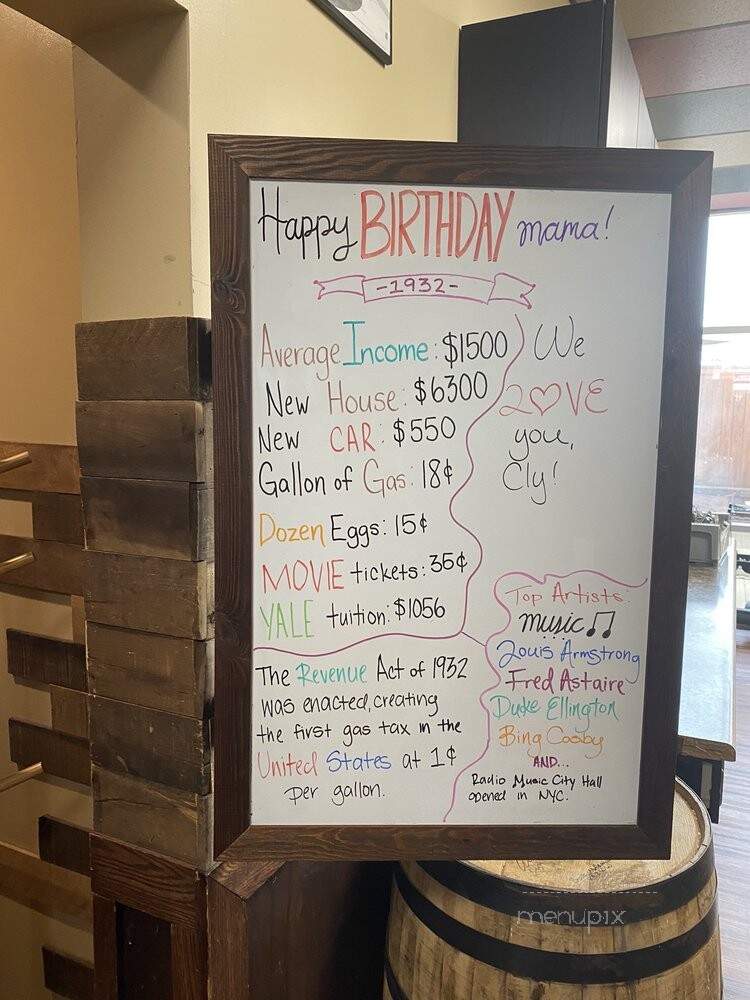 Happy BIRTHDAY mama!
-1932-
Average Income: $1500
New House: $6300
New CAR: $550
Gallon of Gas: 18¢
Dozen Eggs: 15¢
MOVIE tickets: 35¢
YALE tuition: $1056
We
LOVE
you,
Cly!
The Revenue Act of 1932
was enacted, creating
the first gas tax in the
United States at 1¢
per gallon.
Top Artists:
music
Louis Armstrong
Fred Astaire
Duke Ellington
Bing Cosby
AND...
Radio Music City Hall
opened in NYC.
menupix